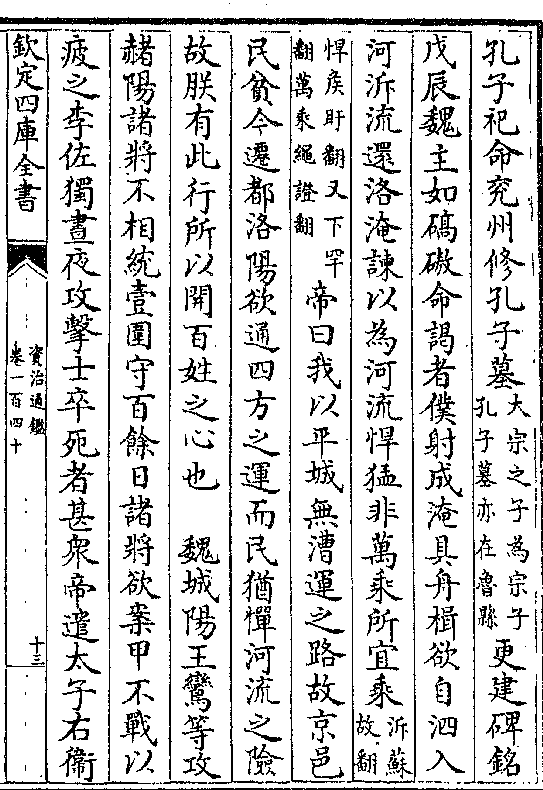 孔子祀命兖州修孔子墓大宗之子為宗子孔子墓亦在魯縣更建碑銘
戊辰魏主如碻磝命謁者僕射成淹具舟楫欲自泗入
河泝流還洛淹諫以為河流悍猛非萬乘所宜乘泝蘇故翻
悍侯旰翻又下罕翻萬乘繩證翻帝曰我以平城無漕運之路故京邑
民貧今遷都洛陽欲通四方之運而民猶憚河流之險
故朕有此行所以開百姓之心也　魏城陽王鸞等攻
赭陽諸將不相統壹圍守百餘日諸將欲案甲不戰以
疲之李佐獨晝夜攻擊士卒死者甚衆帝遣太子右衛
欽定四庫全書
資治通鑑
卷一百四十
十三